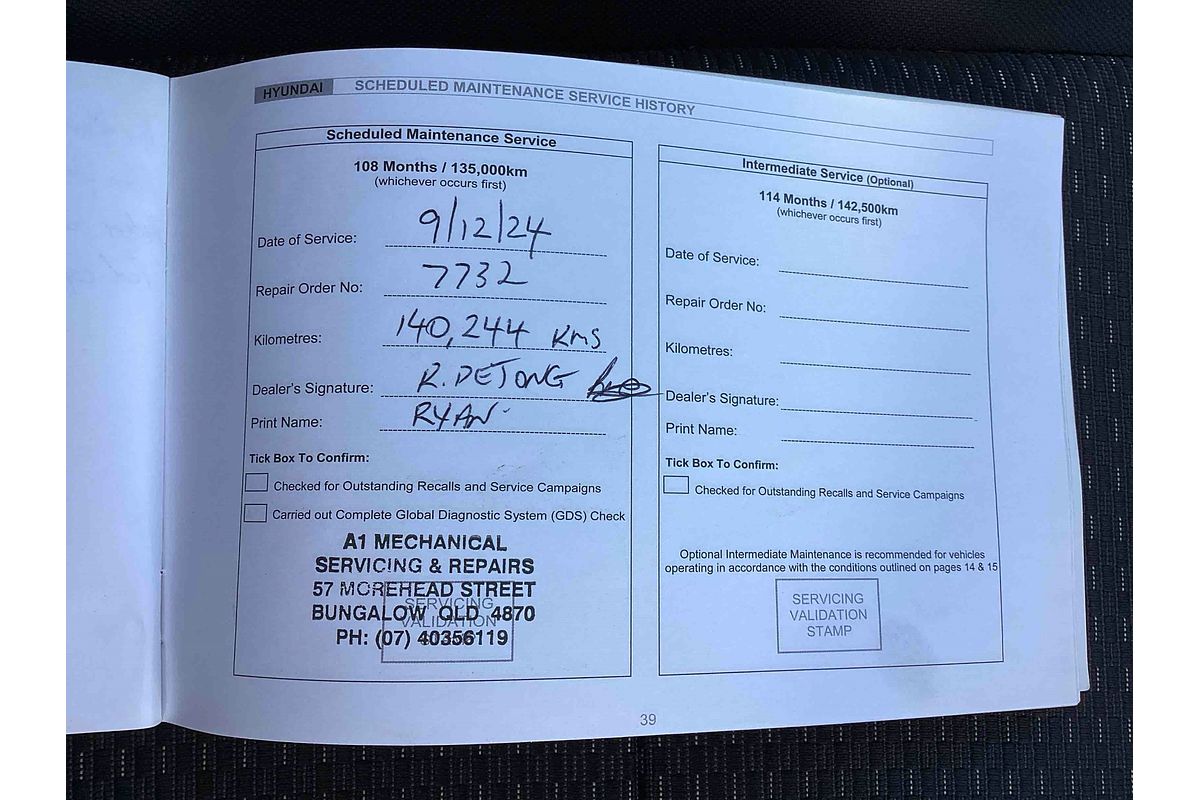 HYUNDAI SCHEDULED MAINTENANCE SERVICE HISTORY
Scheduled Maintenance Service
108 Months / 135,000km
(whichever occurs first)
Date of Service: 9/12/24
Repair Order No: 7732
Kilometres: 140,244 Kms
Dealer's Signature: R. DEJONG
Print Name: RYAN
Tick Box To Confirm:
Checked for Outstanding Recalls and Service Campaigns
Carried out Complete Global Diagnostic System (GDS) Check
A1 MECHANICAL
SERVICING & REPAIRS
57 MOREHEAD STREET
SERVICING
BUNGALOW QLD 4870
VALIDATION
PH: (07) 40356119
Intermediate Service (Optional)
114 Months / 142,500km
(whichever occurs first)
Date of Service:
Repair Order No:
Kilometres:
Dealer's Signature:
Print Name:
Tick Box To Confirm:
Checked for Outstanding Recalls and Service Campaigns
Optional Intermediate Maintenance is recommended for vehicles
operating in accordance with the conditions outlined on pages 14 & 15
SERVICING
VALIDATION
STAMP
39